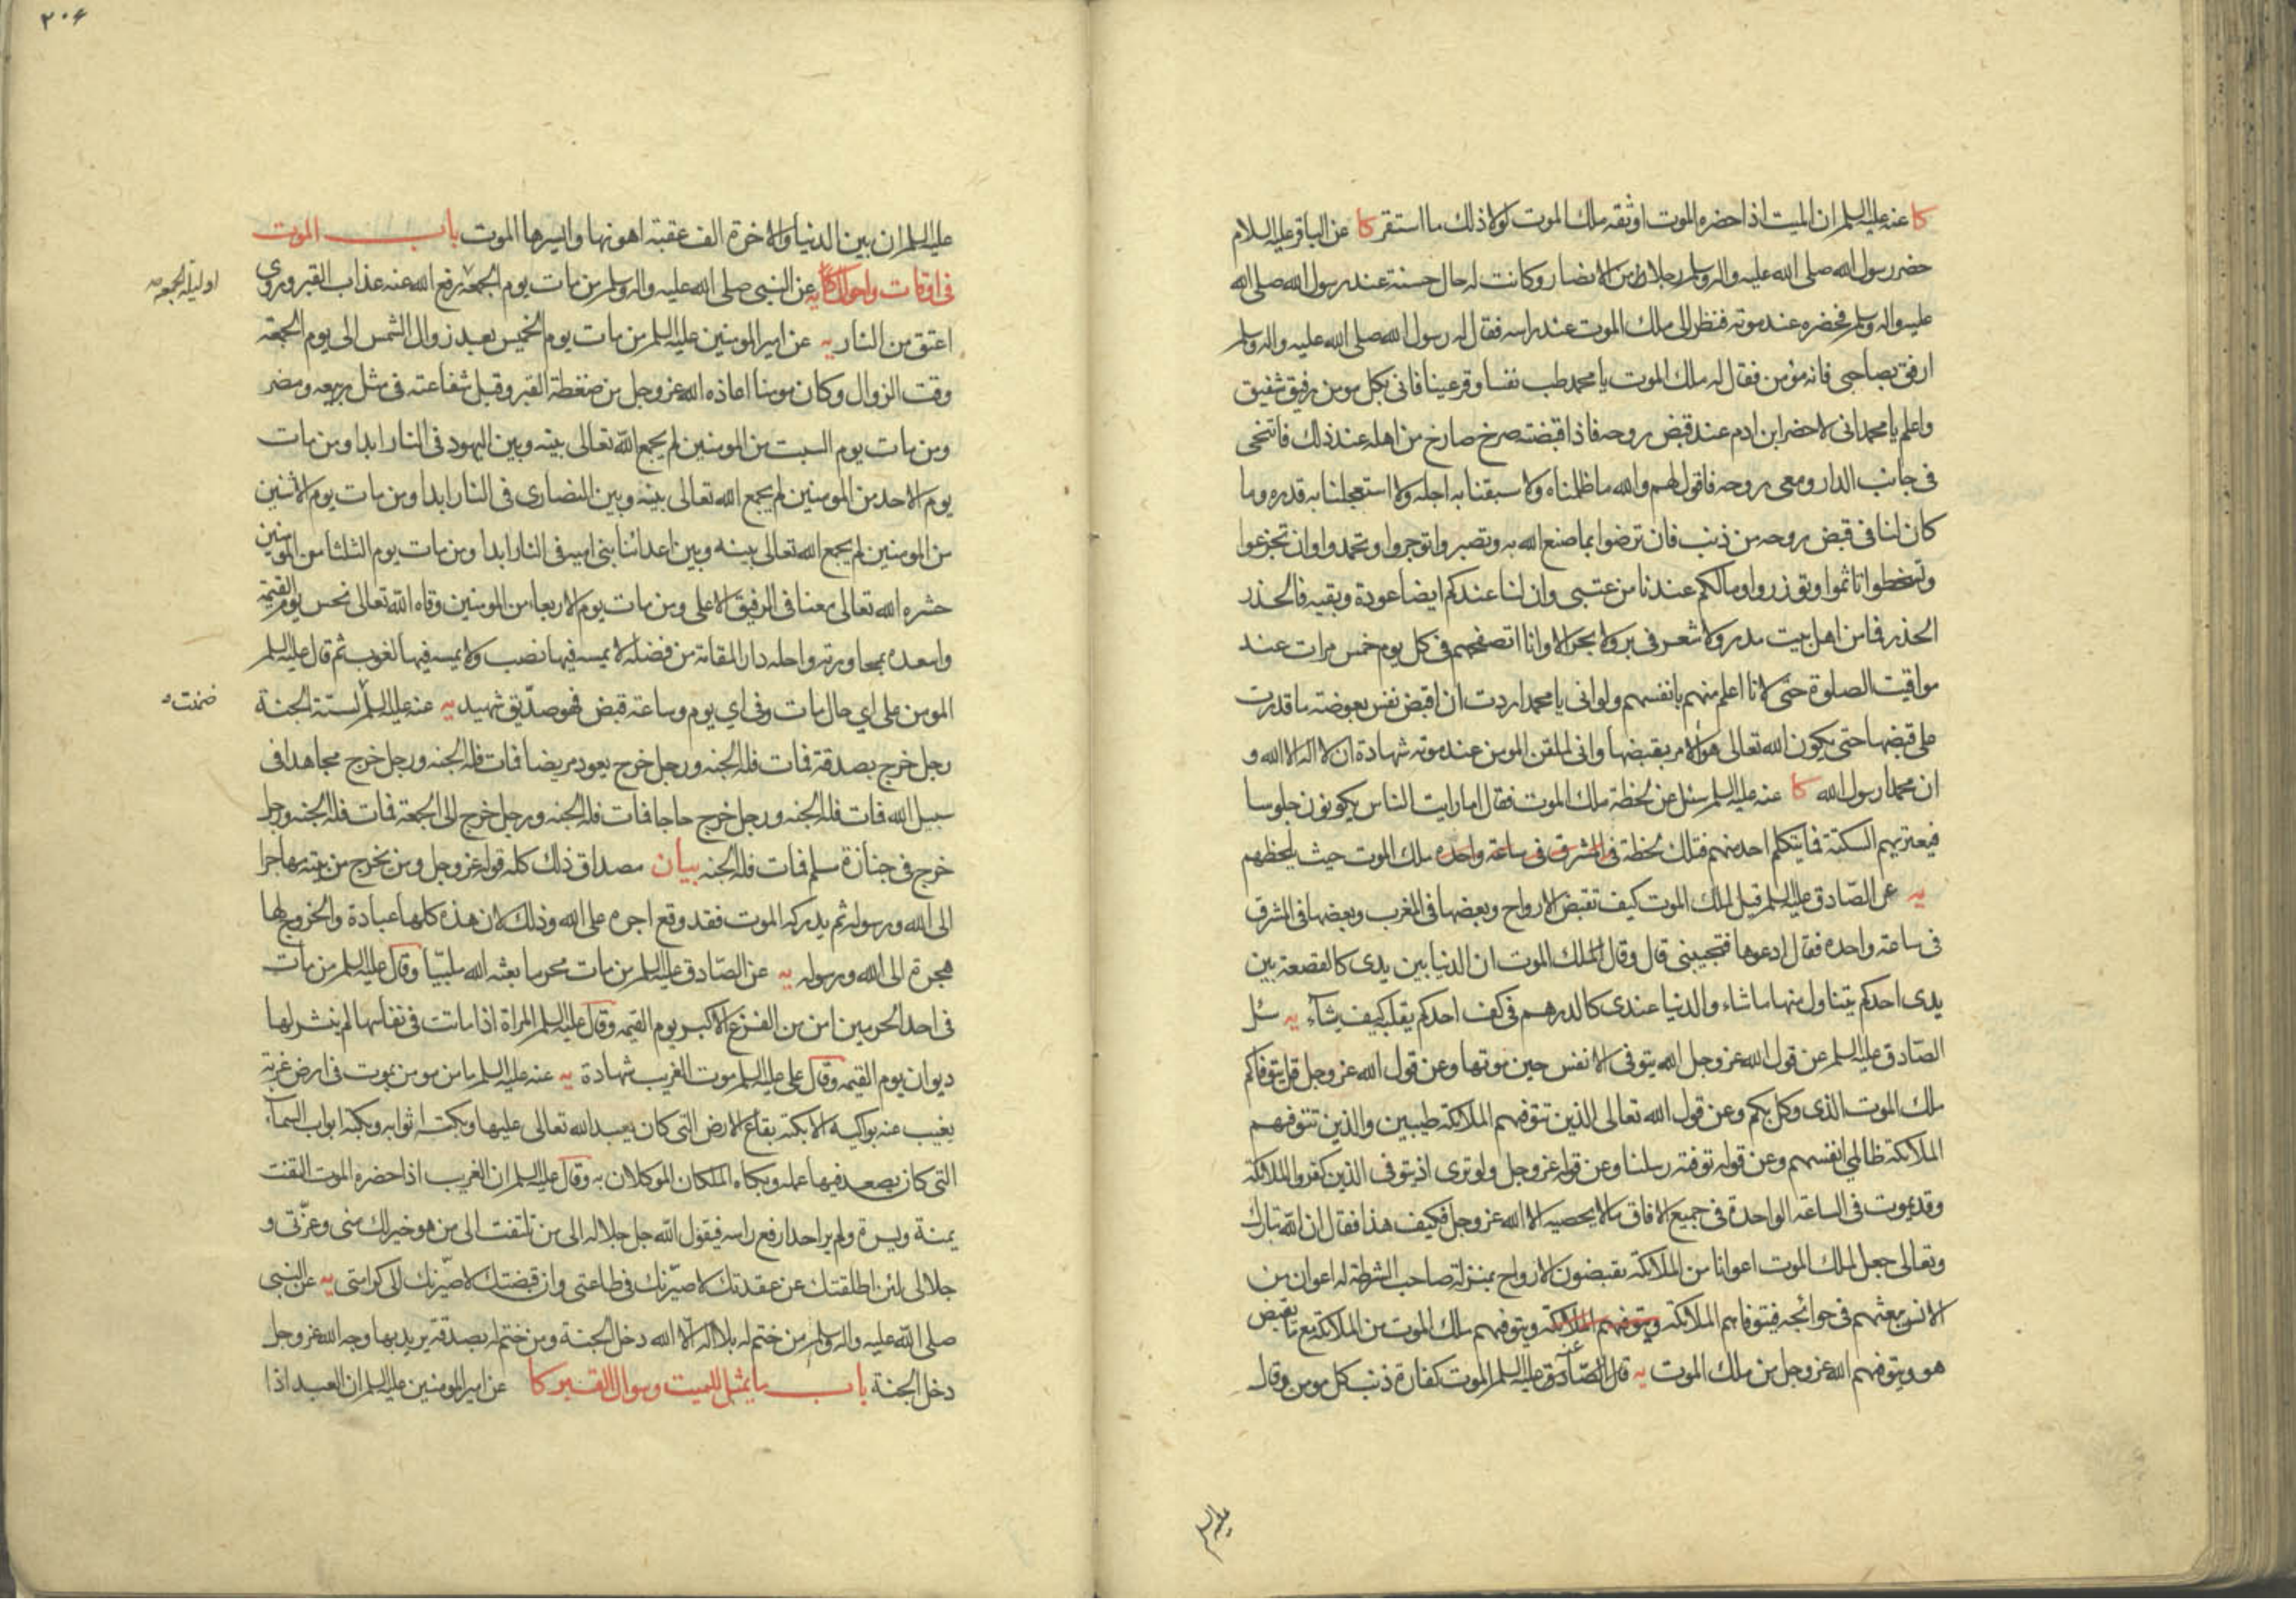 كا عنه عليه السلم ان الميت اذا حضره الموت اوثقه ملك الموت لولا ذلك ما استقر كا عن الباقر عليه السلام
حضر رسول الله صلى الله عليه واله وسلم رجلا من الانصار وكانت له حال حسنة عند رسول الله صلى الله
عليه واله وسلم فحضره عند موته فنظر الى ملك الموت عند راسه فقال له رسول الله صلى الله عليه واله وسلم
ارفق بصاحبي فانه مؤمن فقال له ملك الموت يا محمد طب نفسا وقر عينا فاني بكل مومن رفيق شفيق
واعلم يا محمد اني لاحضر ابن ادم عند قبض روحه فاذا قبضته صرخ صارخ من اهله عند ذلك فاتنحى
في جانب الدار ومعى روحه فاقول لهم والله ما ظلمناه ولا سبقنا به اجله ولا استعجلنا به قدره وما
كان لنا في قبض روحه من ذنب فان ترضوا بما صنع الله به وتصبروا توجروا وتحمدوا وان تجزعوا
وتسخطوا تاثموا وتوزروا وما لكم عندنا من عتبى وان لنا عندكم ايضا عودة وبقيه فالحذر
الحذر فما من اهل بيت مدر ولا شعر في بر ولا بحر الا وانا اتصفحهم في كل يوم خمس مرات عند
مواقيت الصلوة حتى لانا اعلم منهم بانفسهم ولو اني يا محمد اردت ان اقبض نفس بعوضة ما قدرت
على قبضها حتى يكون الله تعالى هو الامر بقبضها واني لملقن المومن عند موته شهادة ان لا اله الا الله و
ان محمدا رسول الله كا عنه عليه السلم سئل عن لحظة ملك الموت فقال اما رايت الناس يكونون جلوسا
فيعتريهم السكتة فما يتكلم احد منهم فتلك لحظة في المشرق في ساعة واحده ملك الموت حيث يلحظهم
يه عن الصّادق عليه السلم قيل لملك الموت كيف تقبض الارواح وبعضها في المغرب وبعضها في المشرق
في ساعة واحده فقال ادعوها فتجيبني قال وقال ملك الموت ان الدنيا بين يدى كالقصعة بين
يدى احدكم يتناول منها ما شاء والدنيا عندى كالدرهم في كف احدكم يقلبه كيف يشآء يه سئل
الصّادق عليه السلم عن قول الله عز وجل الله يتوفى الانفس حين موتها وعن قول الله عز وجل قل يتوفاكم
ملك الموت الذى وكل بكم وعن قول الله تعالى الذين تتوفهم الملائكة طيبين والذين تتوفهم
الملائكة ظالمي انفسهم وعن قوله توفته رسلنا وعن قوله عز وجل ولو ترى اذ يتوفى الذين كفروا الملائكة
وقد يموت في الساعة الواحدة في جميع الافاق ما لا يحصيه الا الله عز وجل فكيف هذا فقال ان الله تبارك
وتعالى جعل لملك الموت اعوانا من الملائكة يقبضون الارواح بمنزلة صاحب الشرطة له اعوان من
الانس يبعثهم في حوائجه فيتوفاهم الملائكة ويتوفهم الملائكة ويتوفهم ملك الموت من الملائكة مع ما يقبض
هو ويتوفهم الله عز وجل من ملك الموت يه قال الصّادق عليه السلم الموت كفارة ذنب كل مومن وقال
٢٠٤
عليه السلم ان بين الدنيا والاخرة الف عقبة اهونها وايسرها الموت باب الموت
في اوقات واحوال كا يه عن النبي صلى الله عليه واله وسلم من مات يوم الجمعة رفع الله عنه عذاب القبر وروى
او ليلة الجمعة صح
اعتق من النار يه عن امير المومنين عليه السلم من مات يوم الخميس بعد زوال الشمس الى يوم الجمعة
وقت الزوال وكان مومنا اعاذه الله عز وجل من ضغطة القبر وقبل شفاعته في مثل ربيعه ومضر
ومن مات يوم السبت من المومنين لم يجمع الله تعالى بينه وبين اليهود في النار ابدا ومن مات
يوم الاحد من المومنين لم يجمع الله تعالى بينه وبين النصارى في النار ابدا ومن مات يوم الاثنين
من المومنين لم يجمع الله تعالى بينه وبين اعدائنا بني اميه في النار ابدا ومن مات يوم الثلثا من المومنين
حشره الله تعالى معنا في الرفيق الاعلى ومن مات يوم الاربعاء من المومنين وقاه الله تعالى نحس يوم القيمة
واسعده بمجاورته واحله دار المقامة من فضله لا يمسه فيها نصب ولا يمسه فيها لغوب ثم قال عليه السلم
المومن على اي حال مات وفي اي يوم وساعة قبض فهو صدّيق شهيد يه عنه عليه السلم لستة الجنة
ضمنت صح
رجل خرج بصدقة فمات فله الجنه ورجل خرج يعود مريضا فمات فله الجنه ورجل خرج مجاهدا في
سبيل الله فمات فله الجنه ورجل خرج حاجا فمات فله الجنه ورجل خرج الى الجمعة فمات فله الجنه ورجل
خرج في جنازة مسلم فمات فله الجنه بيان مصداق ذلك كله قوله عز وجل ومن يخرج من بيته مهاجرا
الى الله ورسوله ثم يدركه الموت فقد وقع اجره على الله وذلك لان هذه كلها عبادة والخروج لها
هجرة الى الله ورسوله يه عن الصّادق عليه السلم من مات محرما بعثه الله ملبيّا وقال عليه السلم من مات
في احد الحرمين امن من الفزع الاكبر يوم القيمه وقال عليه السلم المراة اذا ماتت في نفاسها لم ينشر لها
ديوان يوم القيمه وقال على عليه السلم موت الغريب شهادة يه عنه عليه السلم ما من مومن يموت في ارض غربة
يغيب عنه بواكيه الا بكته بقاع الارض التي كان يعبد الله تعالى عليها وبكت اثوابه وبكته ابواب السمآء
التي كان يصعد فيها عمله وبكاه الملكان الموكلان به وقال عليه السلم ان الغريب اذا حضره الموت التفت
يمنة ويسرة ولم ير احدا رفع راسه فيقول الله جل جلاله الى من تلتفت الى من هو خير لك منى وعزّتى و
جلالى لئن اطلقتك عن عقدتك لاصيّرنك في طاعتى وان قبضتك لاصيّرنك الى كرامتى يه عن النبي
صلى الله عليه واله وسلم من ختم له بلا اله الا الله دخل الجنة ومن ختم له بصدقة يريد بها وجه الله عز وجل
دخل الجنة باب ما يمثل للميت وسوال القبر كا عن امير المومنين عليه السلم ان العبد اذا
عليه السلم